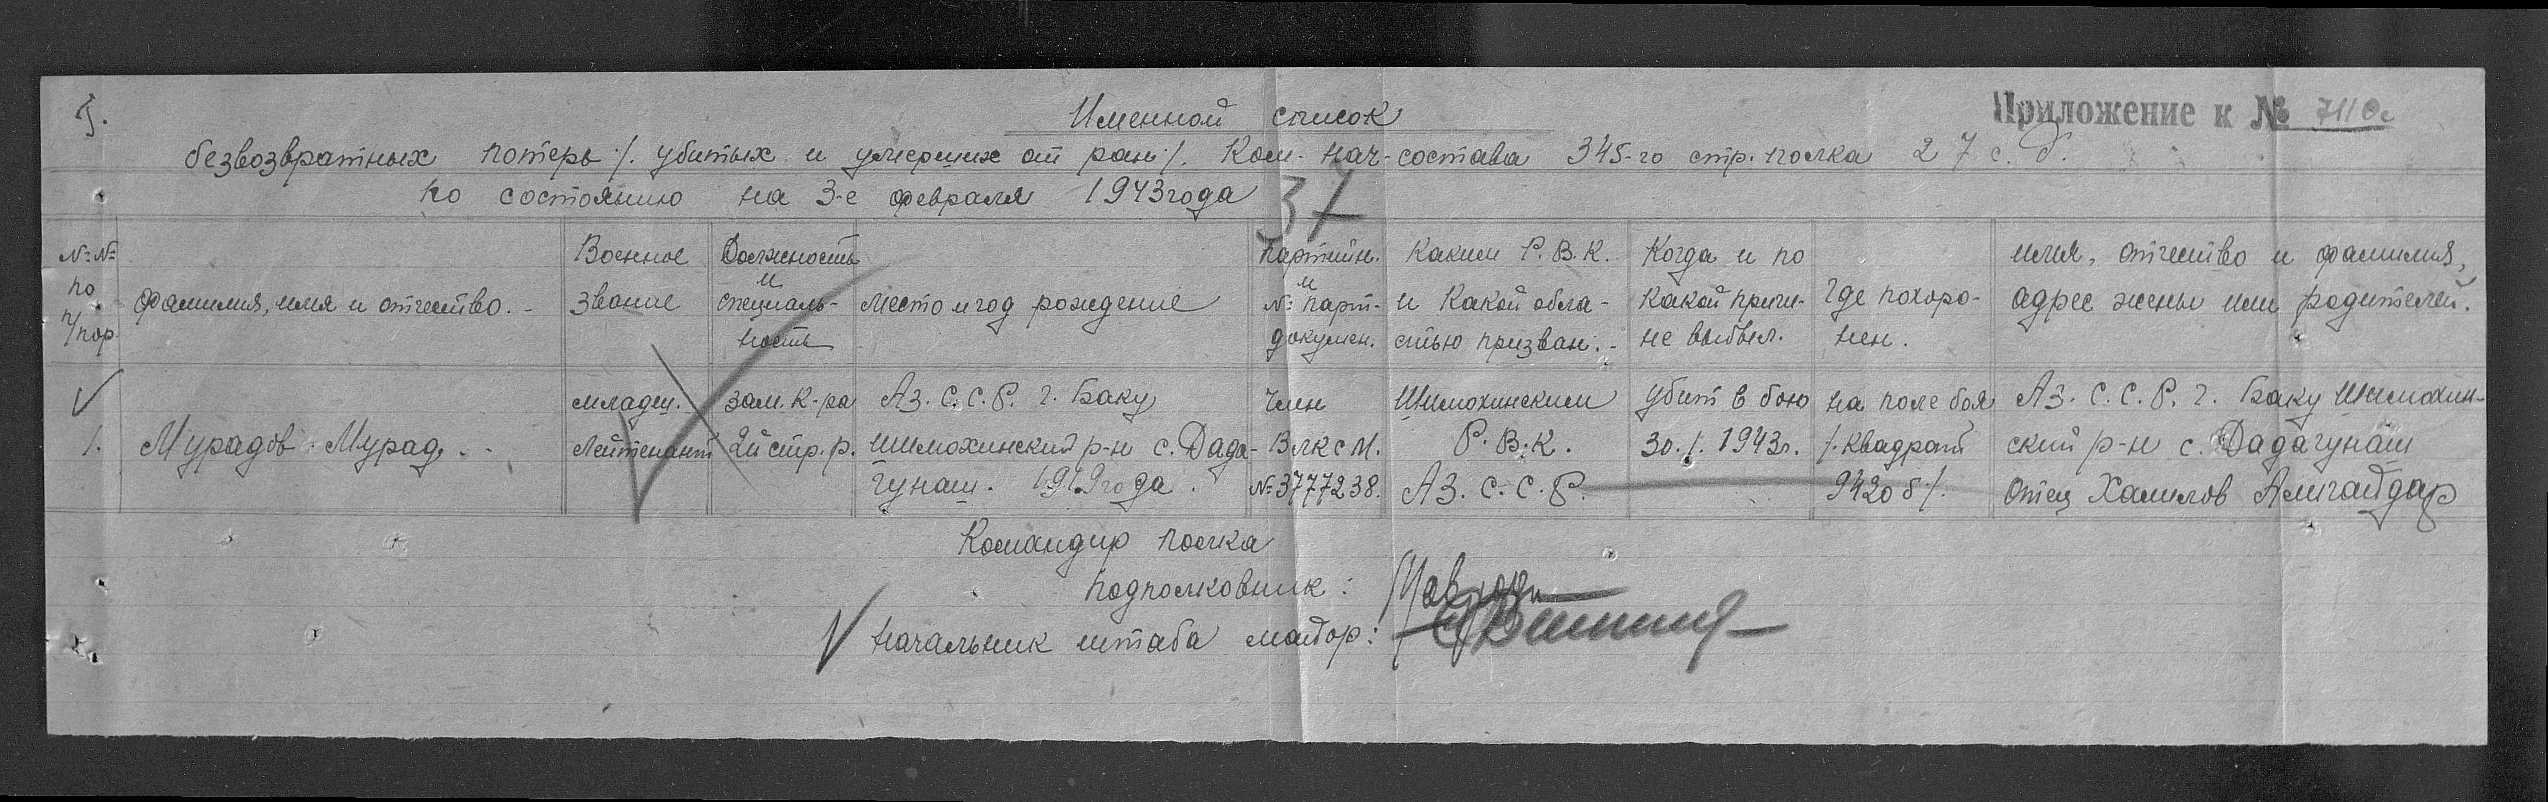 Приложение к № 7110с
Именной список
безвозвратных потерь /. убитых и умерших от ран /. Ком-нач-состава 345-го стр. полка 27 с. д.
по состоянию на 3-е февраля 1943 года
37
№№ по п/пор
Фамилия, имя и отчество.
Военное звание
Должность и специальность
Место и год рождение
Партийн. и № парт-докумен.
Каким Р.В.К. и какой обла-стью призван.
Когда и по какой причи-не выбыл.
Где похоро-нен.
имя, отчество и фамилия, адрес жены или родителей.
1.
Мурадов Мурад.
младш. Лейтенант
зам. к-ра 2й стр. р.
Аз. С.С.Р. г. Баку
Шимохинский р-н с. Дада-
гунаш. 1919 года.
Член
ВЛКСМ.
№ 3777238.
Шимохинским
Р.В.К.
Аз. С.С.Р.
убит в бою
30.1.1943г.
на поле боя
/. квадрат
9420 б /.
Аз. С.С.Р. г. Баку Шимохин-
ский р-н с. Дадагунаш
отец Халилов Алигайдар
Командир полка
подполковник:
Начальник штаба майор: